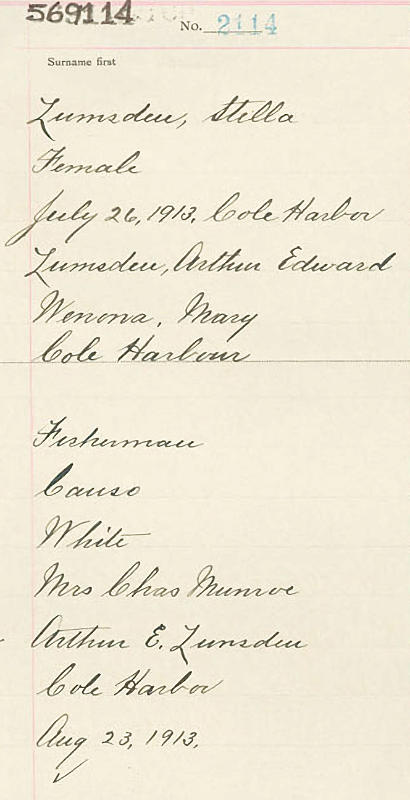 569114
No. 2114
Surname first
Lumsden, Stella
Female
July 26, 1913. Cole Harbor
Lumsden, Arthur Edward
Wenona, Mary
Cole Harbour
Fisherman
Canso
White
Mrs Chas Munroe
Arthur E. Lumsden
Cole Harbor
Aug 23, 1913.